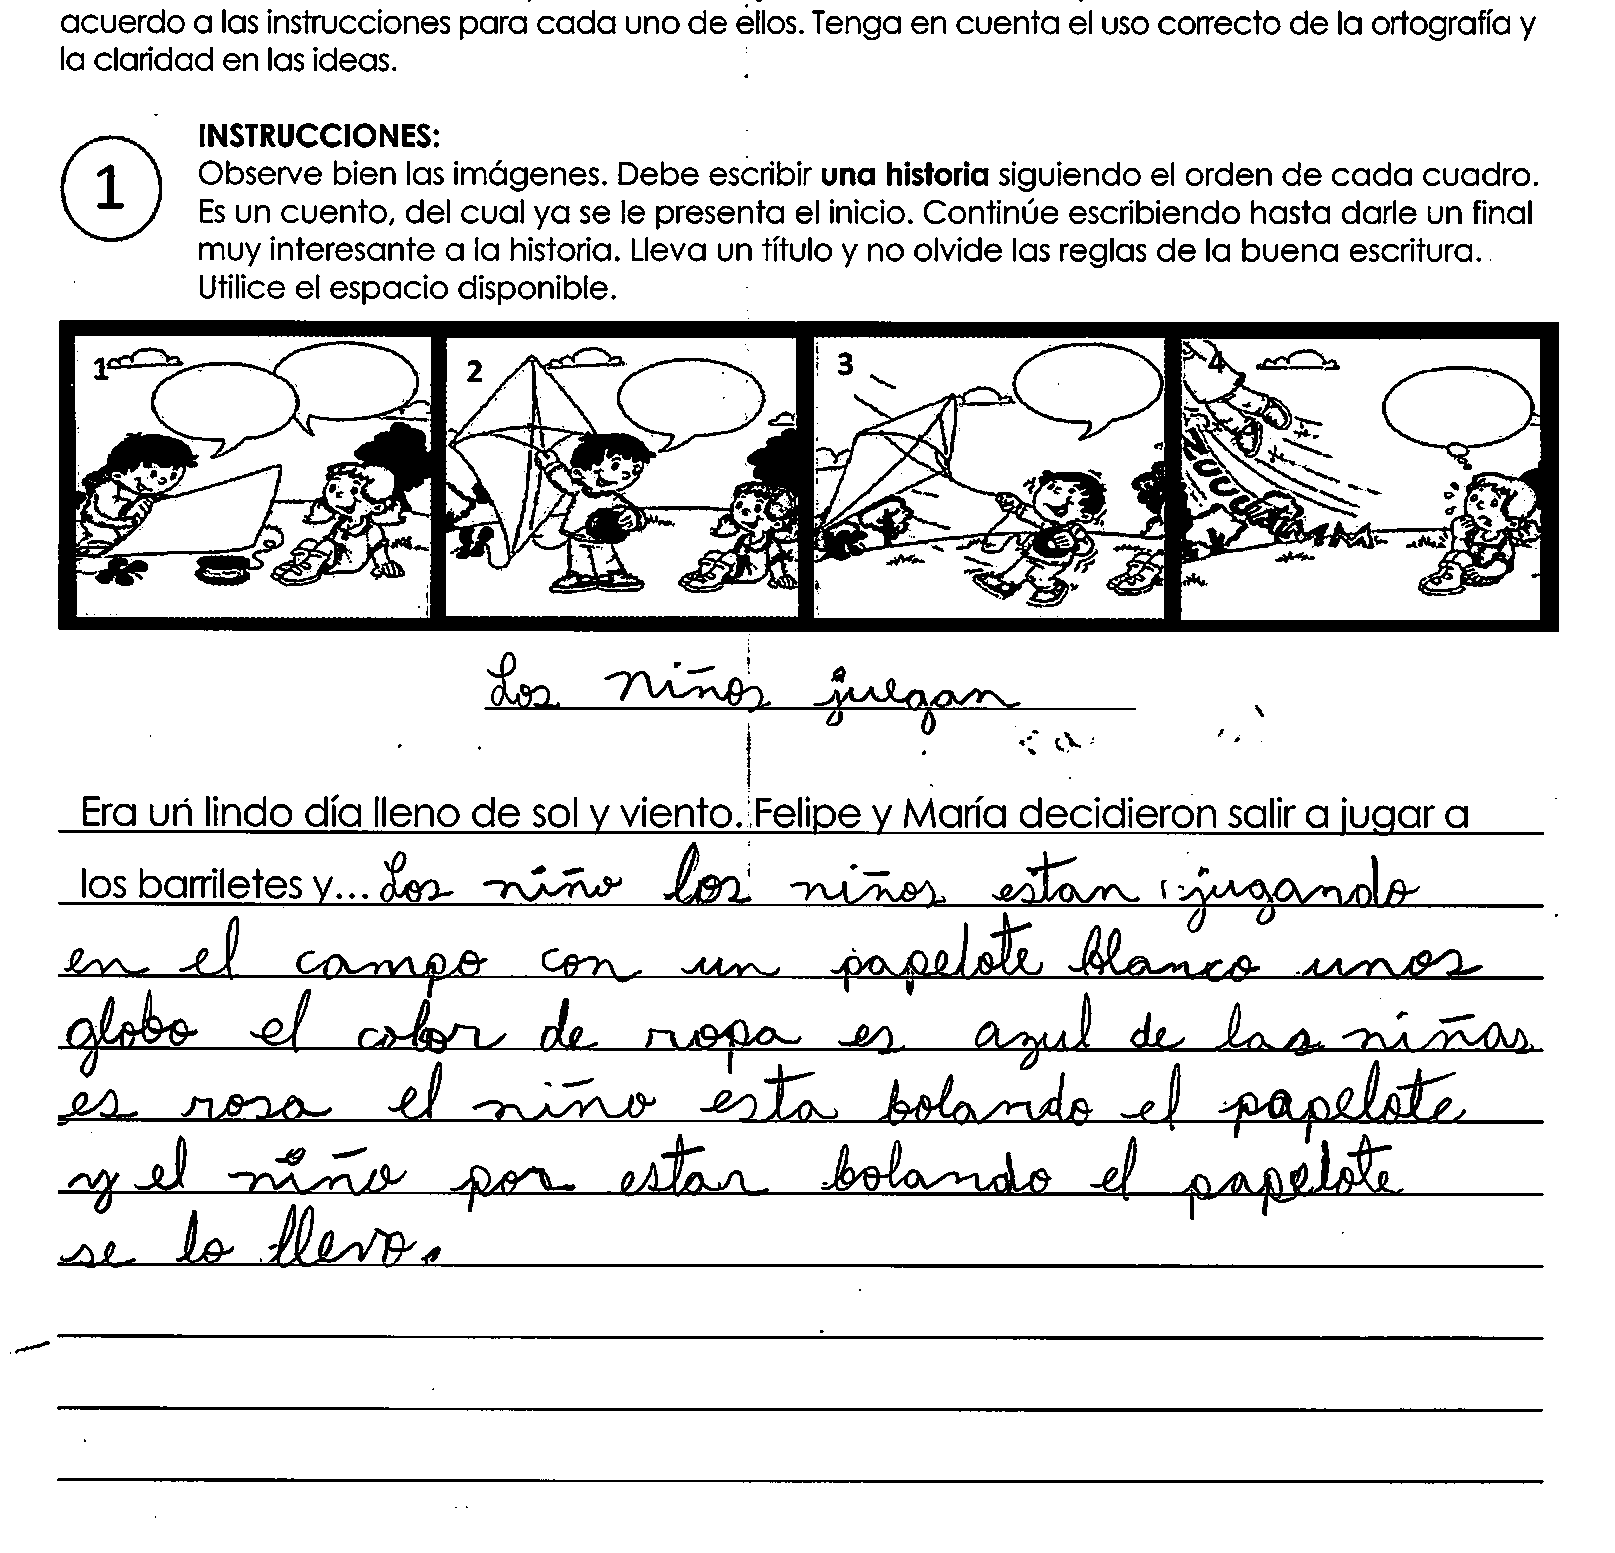 acuerdo a las instrucciones para cada uno de ellos. Tenga en cuenta el uso correcto de la ortografía y
la claridad en las ideas.
1
INSTRUCCIONES:
Observe bien las imágenes. Debe escribir una historia siguiendo el orden de cada cuadro.
Es un cuento, del cual ya se le presenta el inicio. Continúe escribiendo hasta darle un final
muy interesante a la historia. Lleva un título y no olvide las reglas de la buena escritura.
Utilice el espacio disponible.
1 2 3 4
Los niños juegan
Era un lindo día lleno de sol y viento. Felipe y María decidieron salir a jugar a
los barriletes y... Los niño los niños estan jugando
en el campo con un papelote blanco unos
globo el color de ropa es azul de las niñas
es rosa el niño esta bolando el papelote
y el niño por estar bolando el papelote
se lo llevo.